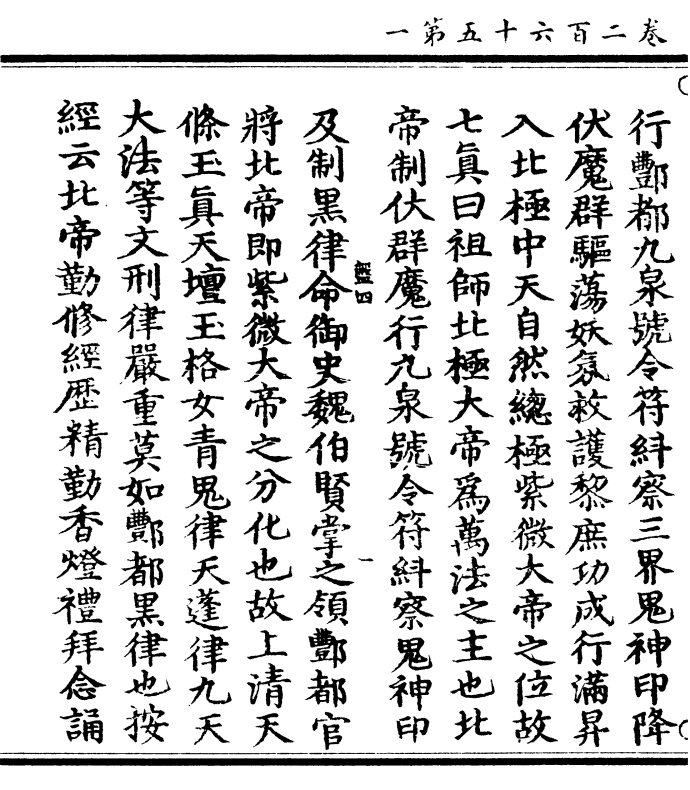 卷二百六十五第一
行酆都九泉號令符糾察三界鬼神印降
伏魔群驅蕩妖氛救護黎庶功成行滿昇
入北極中天自然總極紫微大帝之位故
七眞曰祖師北極大帝爲萬法之主也北
帝制伏群魔行九泉號令符糾察鬼神印
及制黑律命御史魏伯賢掌之領酆都官
將北帝即紫微大帝之分化也故上清天
條玉眞天壇玉格女青鬼律天蓬律九天
大法等文刑律嚴重莫如酆都黑律也按
經云北帝勤修經歷精勤香燈禮拜念誦